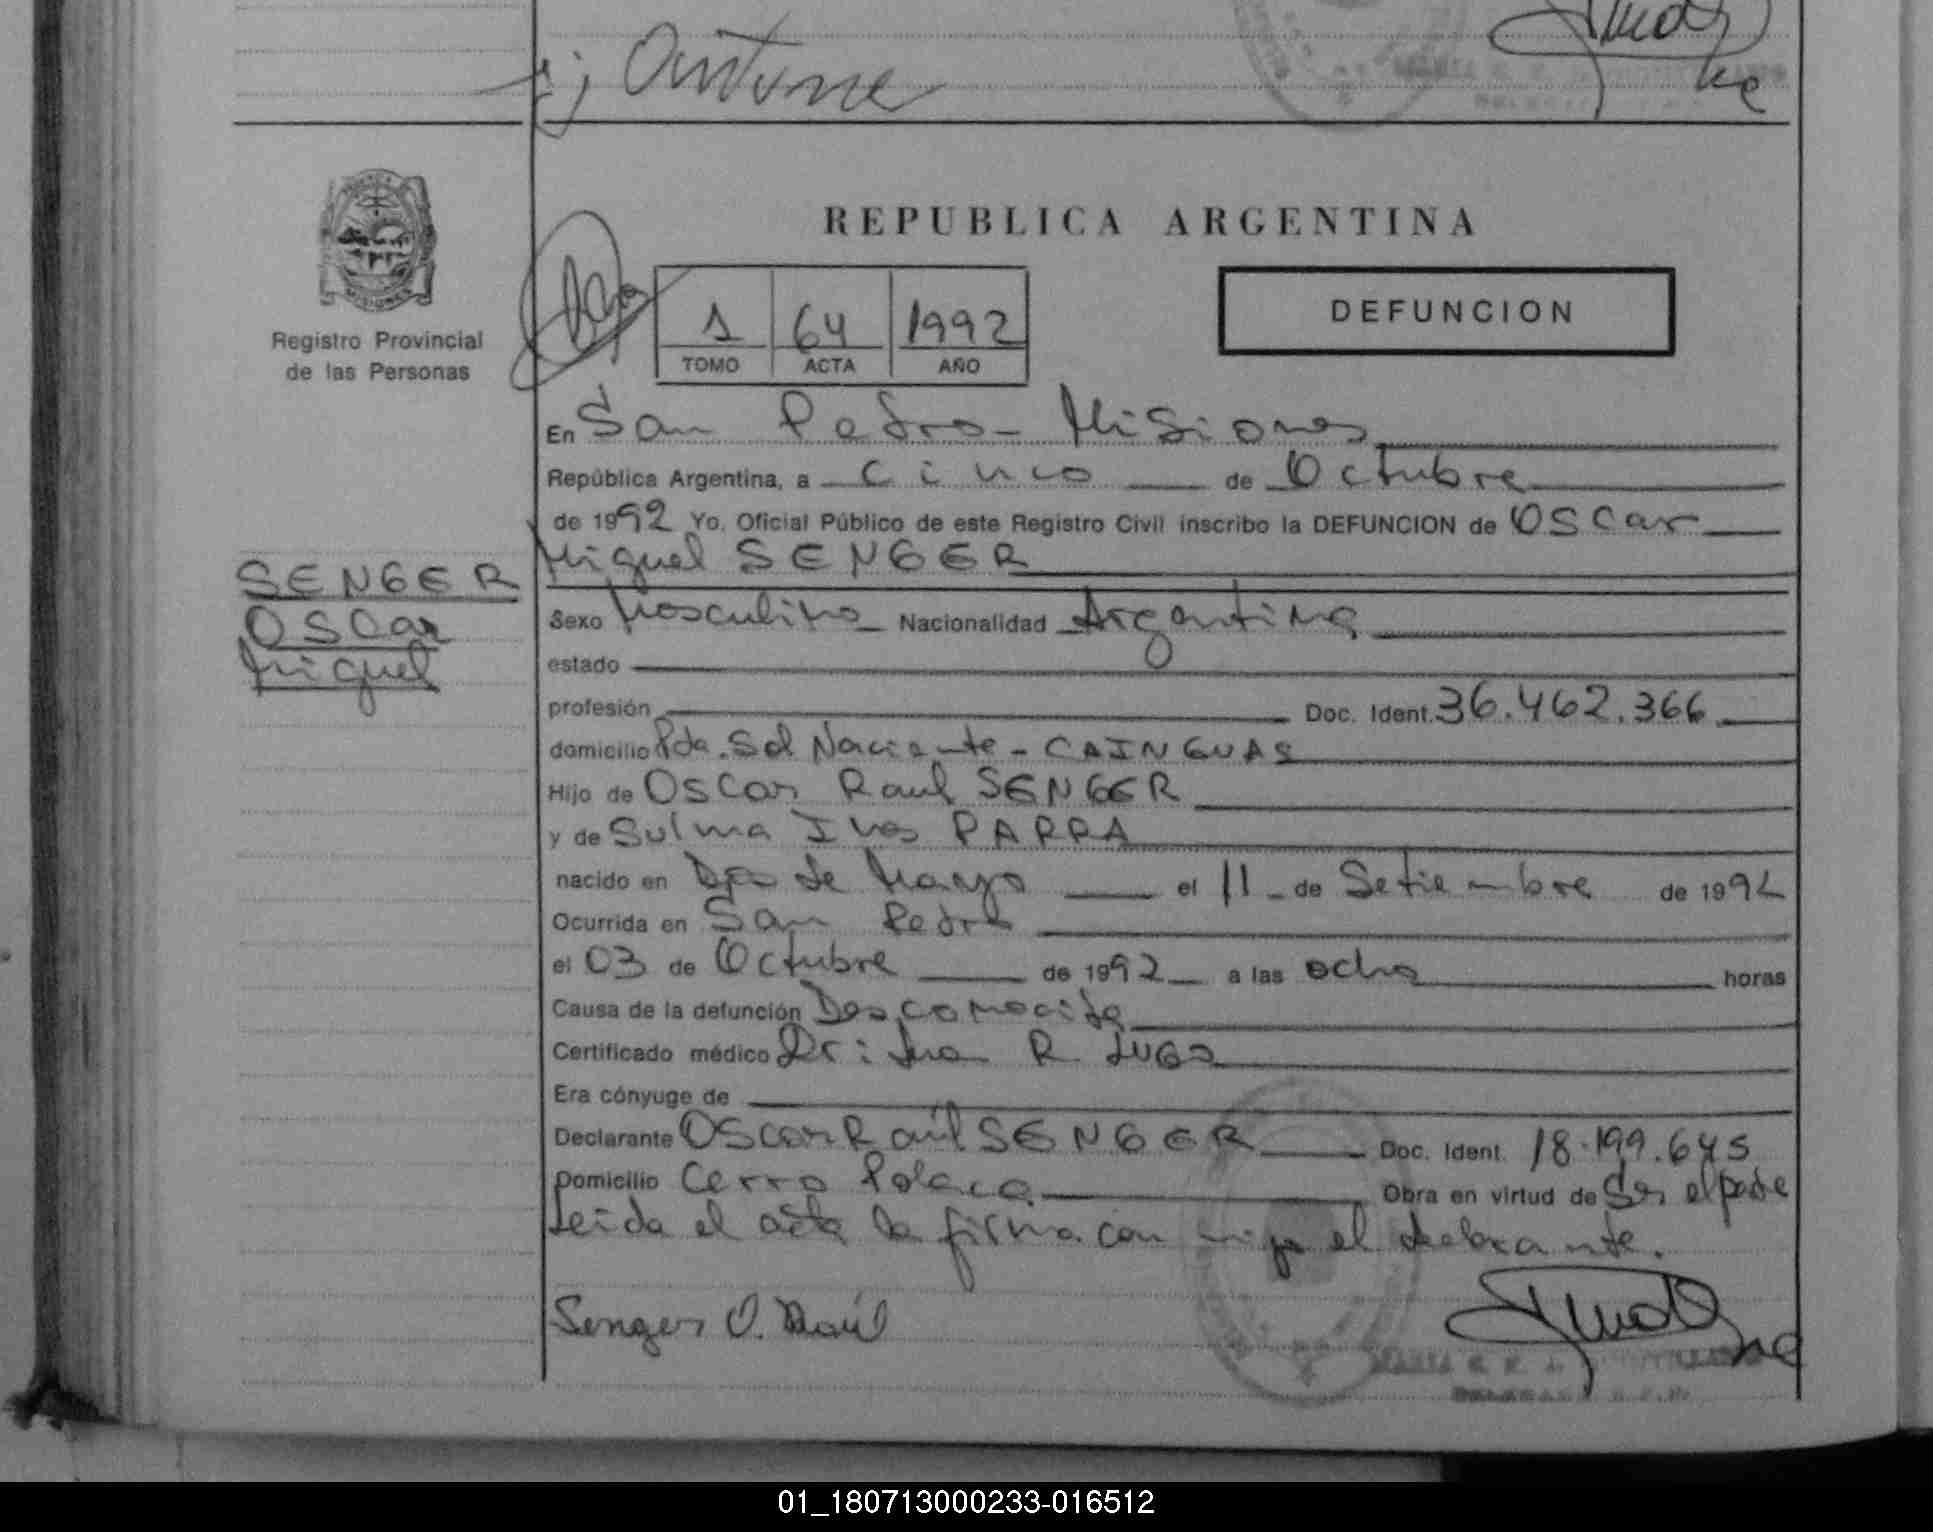 Antune
REPUBLICA ARGENTINA
MISIONES
Registro Provincial
de las Personas
1 64 1992
TOMO ACTA AÑO
DEFUNCION
En San Pedro - Misiones
República Argentina, a cinco de Octubre
de 1992 Yo, Oficial Público de este Registro Civil inscribo la DEFUNCION de Oscar
Miguel SENGER
SENGER
Oscar
Miguel
Sexo Masculino Nacionalidad Argentina
estado
profesión Doc. Ident. 36.462.366
domicilio Pda. Sol Naciente - CAINGUAS
Hijo de Oscar Raul SENGER
y de Sulma Ines PARRA
nacido en de Mayo el 11 de Setiembre de 1992
Ocurrida en San Pedro
el 03 de Octubre de 1992 a las ocho horas
Causa de la defunción Desconocida
Certificado médico Dr: R. LUGO
Era cónyuge de
Declarante Oscar Raúl SENGER Doc. Ident. 18.199.645
Domicilio Cerro Polaco Obra en virtud de Ser el padre
Leida el acta la firma con migo el declarante.
Senger O. Raúl
01_180713000233-016512